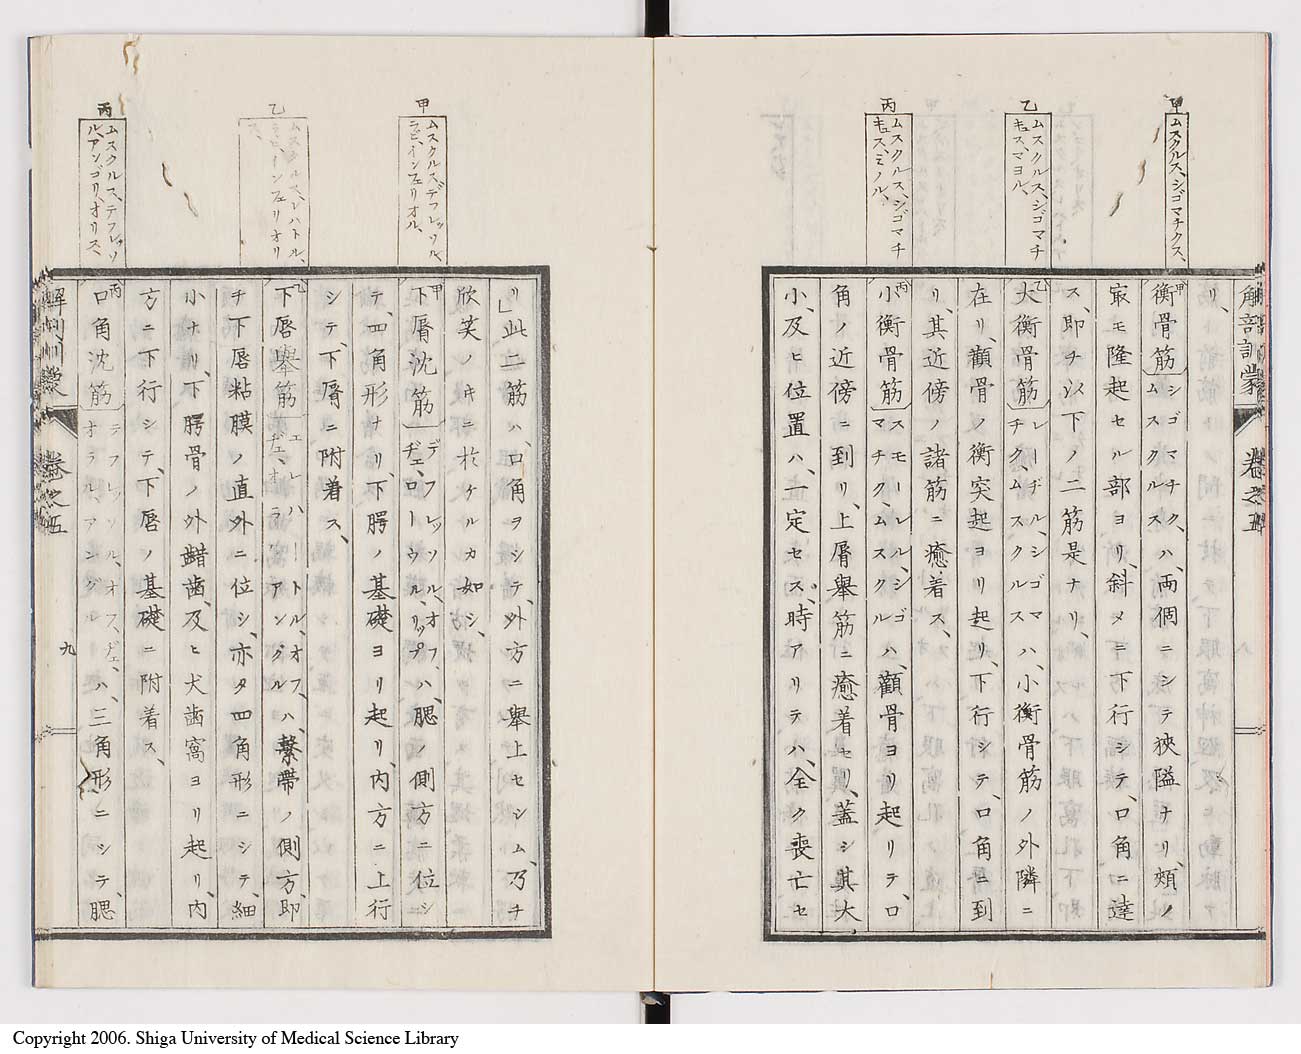 解剖訓蒙 卷之五
甲
ムスクルス、シゴマチクス、
乙
ムスクルス、シゴマチ
キュス、マヨル、
丙
ムスクルス、シゴマチ
キュス、ミノル、
甲衡骨筋シゴマチク、ムスクルスハ、両個ニシテ狹隘ナリ、頰ノ
㝡モ隆起セル部ヨリ、斜メニ下行シテ、口角ニ達
ス、即チ以下ノ二筋是ナリ、
乙大衡骨筋レーヂル、シゴマチク、ムスクルスハ、小衡骨筋ノ外隣ニ
在リ、顴骨ノ衡突起ヨリ起リ、下行シテ、口角ニ到
リ、其近傍ノ諸筋ニ癒着ス、
丙小衡骨筋スモールレル、シゴマチク、ムスクルハ、顴骨ヨリ起リテ、口
角ノ近傍ニ到リ、上脣擧筋ニ癒着セリ、蓋シ其大
小、及ヒ位置ハ、一定セス、時アリテハ、全ク喪亡セ
甲
ムスクルス、デフレッソル、
ラビ、インフェリオル、
乙
ムスクルス、レハトル、
ラビ、インフェリオリ
ス、
丙
ムスクルス、テフレッソ
ル、アンゴリ、オリス、
リ」此二筋ハ、口角ヲシテ、外方ニ擧上セシム、乃チ
欣笑ノ時ニ於ケルカ如シ、
甲下脣沈筋デフレッソル、オフ、ヂェ、ローウル、リップハ、腮ノ側方ニ位シ
テ、四角形ナリ、下腭ノ基礎ヨリ起リ、内方ニ上行
シテ、下脣ニ附着ス、
乙下唇擧筋エレハートル、オフ、ヂェ、オラアンクルハ、繫帶ノ側方、即
チ下唇粘膜ノ直外ニ位シ、亦タ四角形ニシテ、細
小ナリ、下腭骨ノ外齰齒、及ヒ犬齒窩ヨリ起リ、内
方ニ下行シテ、下唇ノ基礎ニ附着ス、
丙口角沈筋デフレッソル、オフ、ヂェ、オラル、アングルハ、三角形ニシテ、腮
解剖訓蒙 卷之五 九
Copyright 2006. Shiga University of Medical Science Library